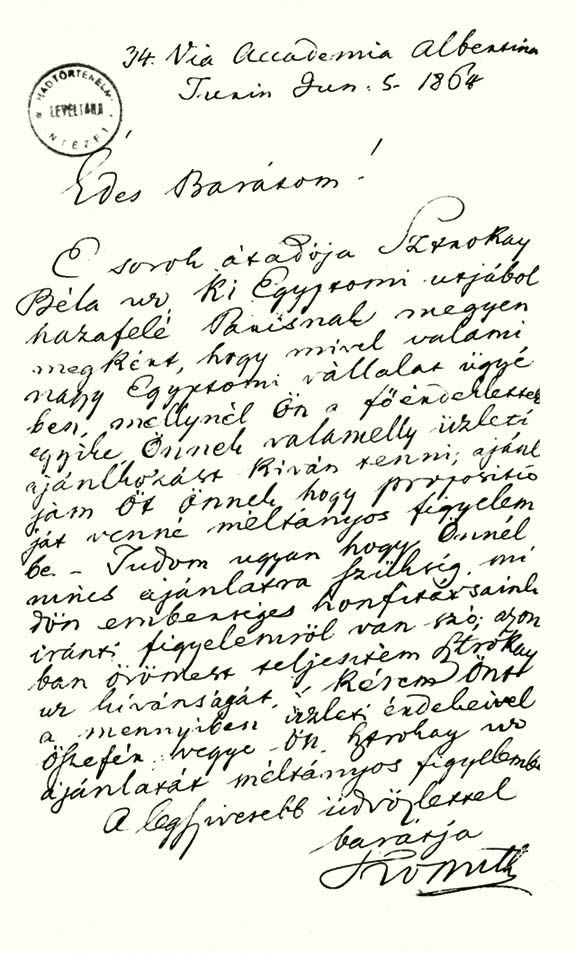 34. Via Accademia Albertina
Turin Jun. 5. 1864
HADTÖRTÉNELMI
LEVÉLTÁRA
INTÉZET
Édes Barátom!
E sorok átadója Sztrokay
Béla ur ki Egyptomi utjából
hazafelé Parisnak megyen
megkért, hogy mivel valami
nagy Egyptomi vállalat ügyé
ben, mellynél Ön a főérdeklettek
egyike Önnek valamelly üzleti
ajánlkozást kiván tenni, ajánl
jam Őt Önnek hogy propositió
ját venné méltányos figyelem
be. – Tudom ugyan hogy Önnél
nincs ajánlatra szükség, mi
dőn emberséges honfitársaink
iránti figyelemről van szó; azon
ban örömest teljesitém Sztrokay
ur kivánságát, kérem Önt
a mennyiben üzleti érdekeivel
öszefér vegye Ön Sztrokay ur
ajánlatát méltányos figyelembe
A legszivesebb üdvözlettel
barátja
Kossuth